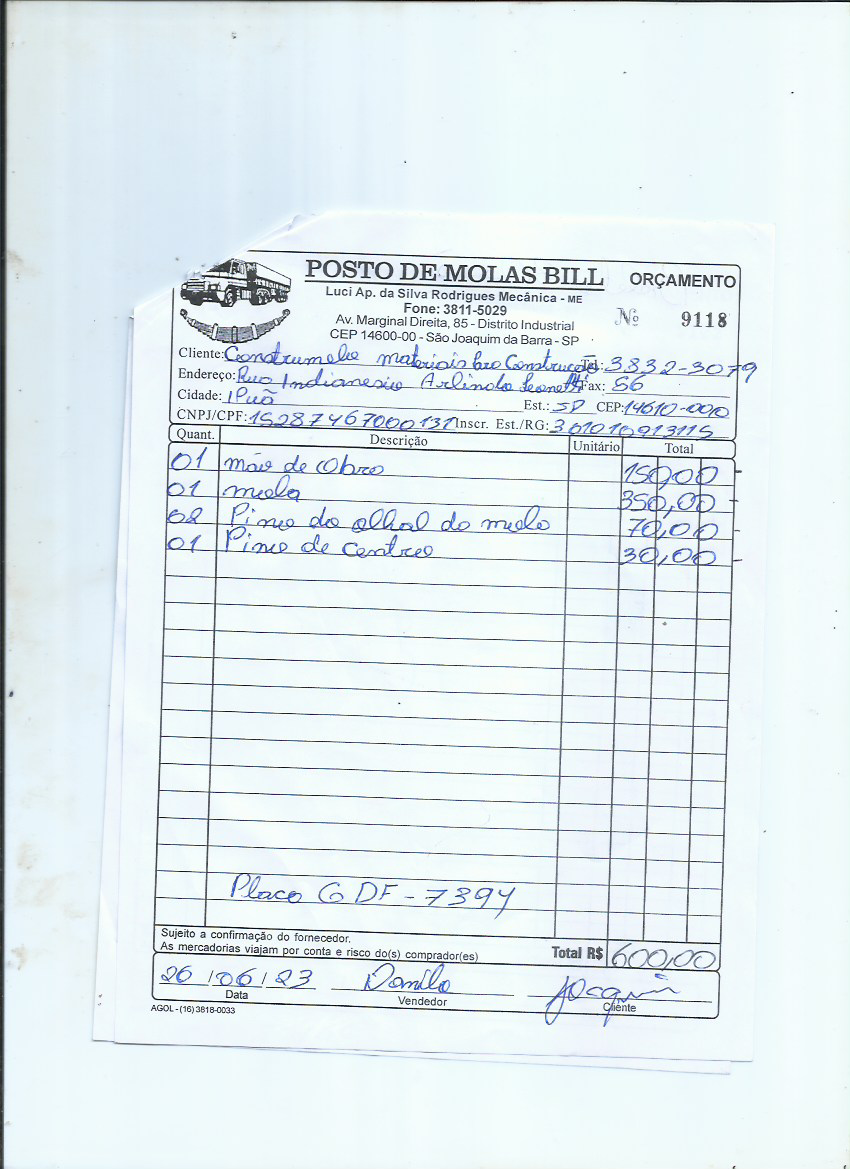 POSTO DE MOLAS BILL ORÇAMENTO
Luci Ap. da Silva Rodrigues Mecânica - ME
Fone: 3811-5029
Nº 9118
Av. Marginal Direita, 85 - Distrito Industrial
CEP 14600-00 - São Joaquim da Barra - SP
Cliente: Construmelo materiais pro Construção Tel.: 3832-3079
Endereço: Rua Arlindo Fax: 56
Cidade: Ipuã Est.: SP CEP: 14610-000
CNPJ/CPF: 15287467000131 Inscr. Est./RG: 301010913115
Quant. Descrição Unitário Total
01 mão de Obra 150,00
01 mola 350,00
02 Pino do olhal do mola 70,00
01 Pino de centro 30,00
Placa GDF-7394
Sujeito a confirmação do fornecedor.
As mercadorias viajam por conta e risco do(s) comprador(es) Total R$ 600,00
26/06/23 Danilo
Data Vendedor Cliente
AGOL - (16) 3818-0033